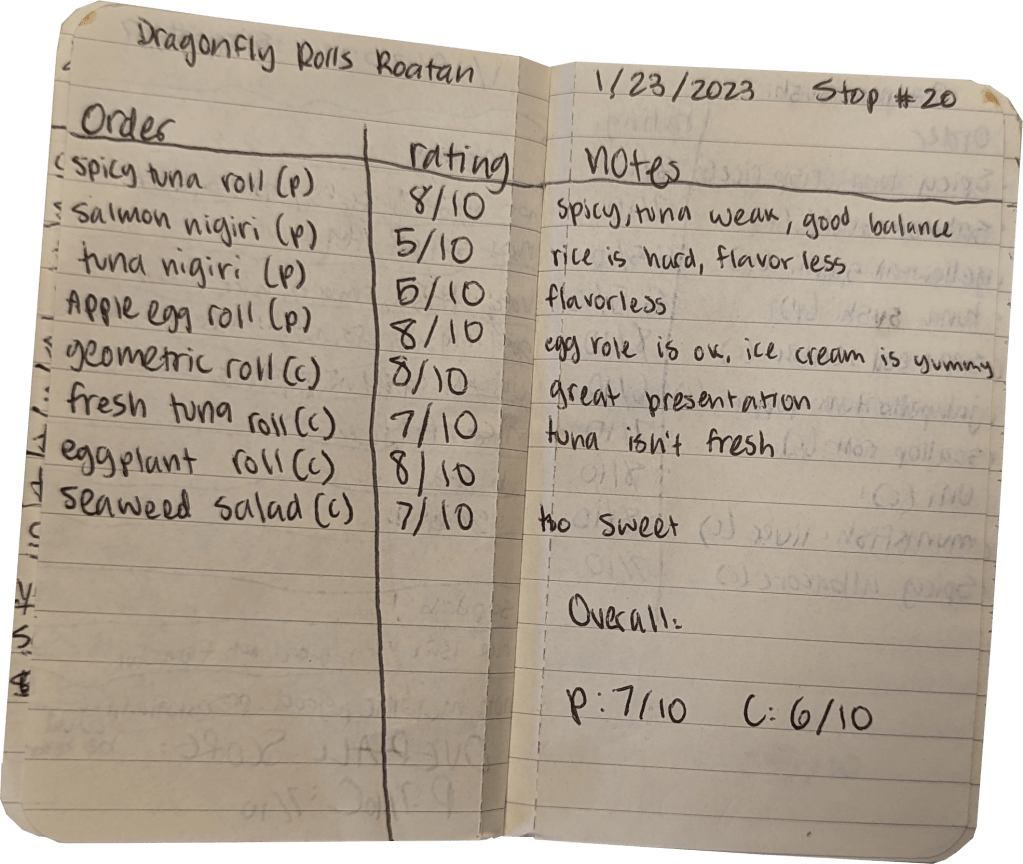 Dragonfly Rolls Roatan 1/23/2023 Stop #20
Order rating notes
spicy tuna roll (p) 8/10 spicy, tuna weak, good balance
salmon nigiri (p) 5/10 rice is hard, flavorless
tuna nigiri (p) 5/10 flavorless
Apple egg roll (p) 8/10 egg role is ok, ice cream is yummy
geometric roll (c) 8/10 great presentation
fresh tuna roll (c) 7/10 tuna isn't fresh
eggplant roll (c) 8/10
seaweed salad (c) 7/10 too sweet
Overall:
P: 7/10 C: 6/10